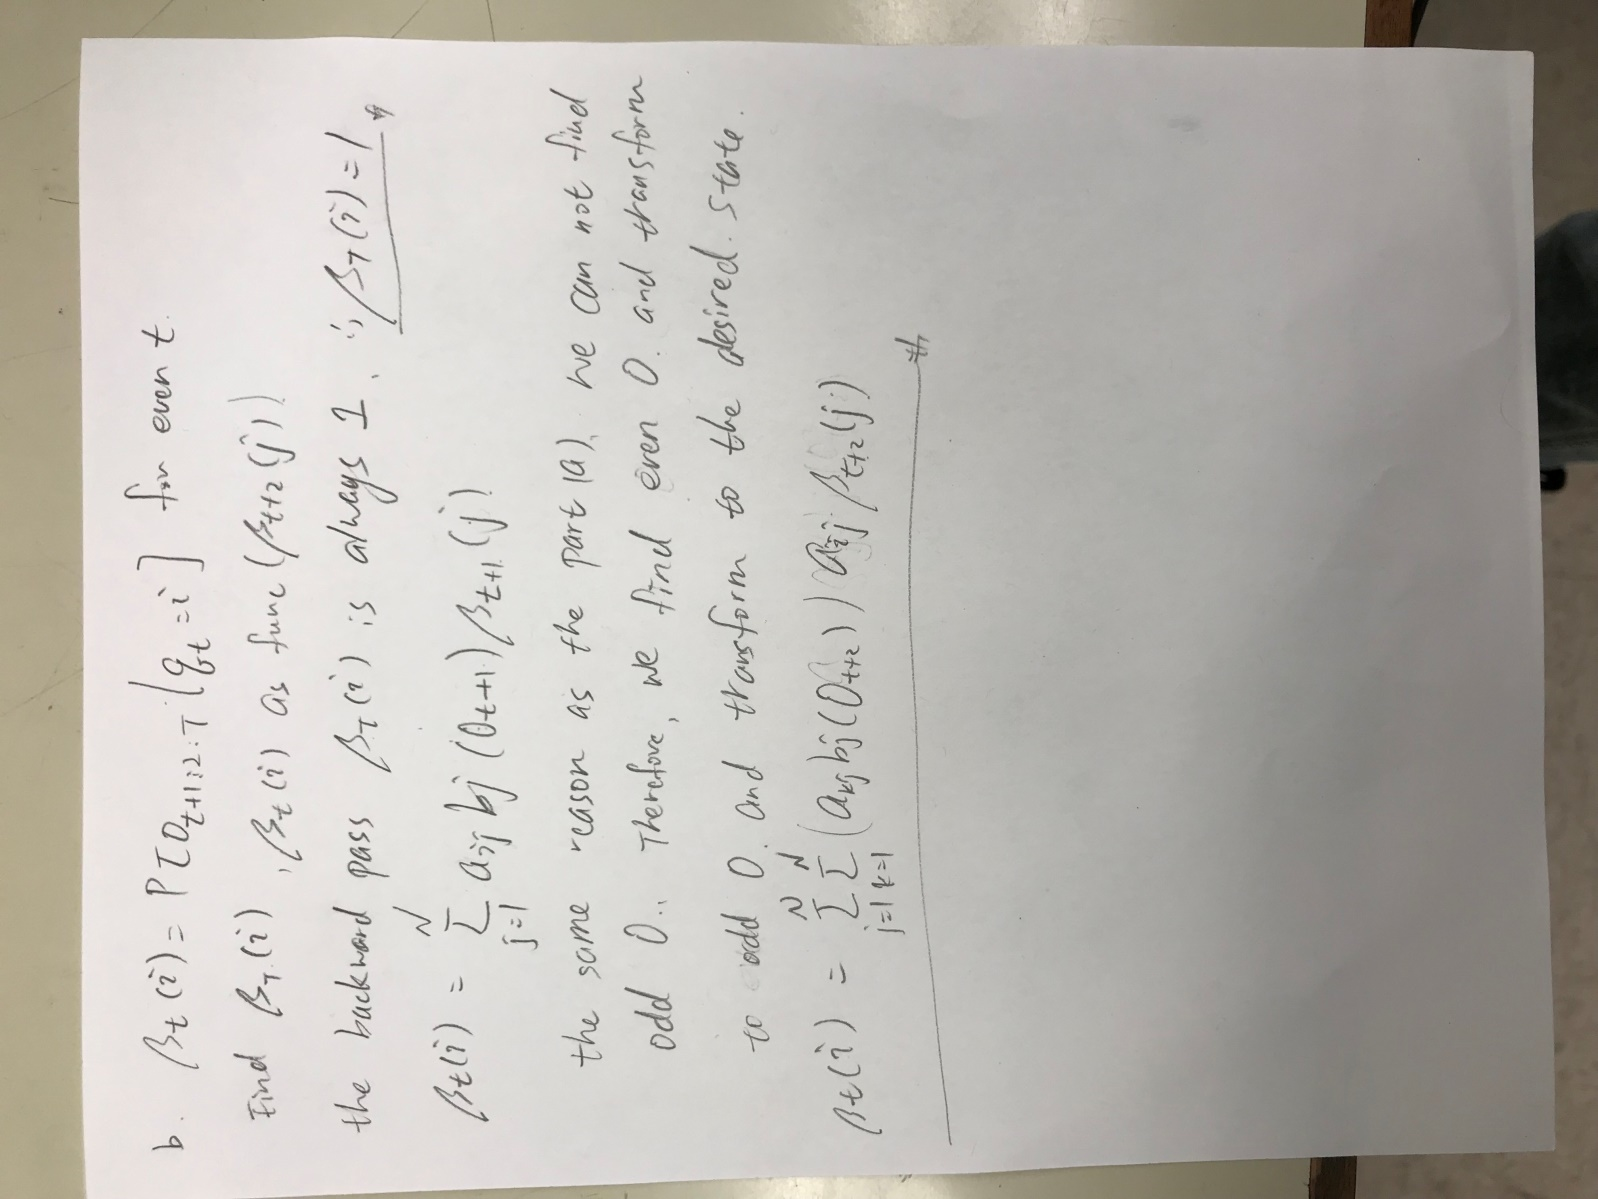 b. β_t(i) = P[O_{t+1:2:T} | q_t = i] for even t.
Find β_T(i), β_t(i) as func(β_{t+2}(j))
the backward pass β_T(i) is always 1. ∴ β_T(i) = 1 #
β_t(i) = Σ_{j=1}^{N} a_{ij} b_j(O_{t+1}) β_{t+1}(j)
the same reason as the part (a), we can not find
odd O.. Therefore, we find even O. and transform
to odd O. and transform to the desired state.
β_t(i) = Σ_{j=1}^{N} Σ_{k=1}^{N} (a_{kj} b_j(O_{t+2})) a_{ij} β_{t+2}(j)
#